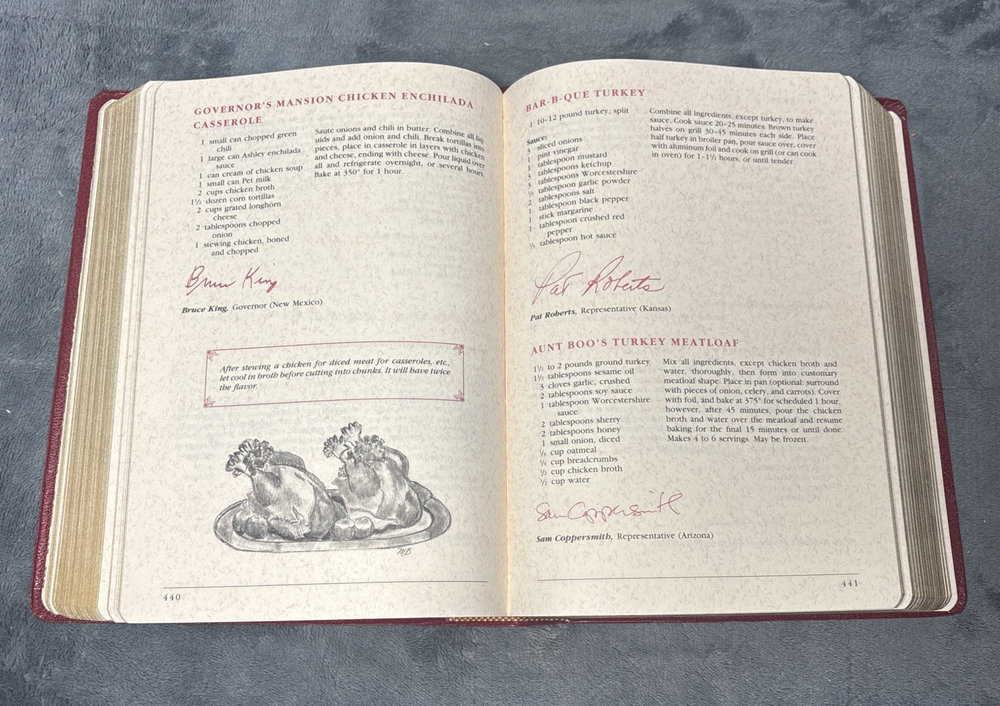 GOVERNOR'S MANSION CHICKEN ENCHILADA
CASSEROLE
1 small can chopped green
chili
1 large can Ashley enchilada
sauce
1 can cream of chicken soup
1 small can Pet milk
2 cups chicken broth
1½ dozen corn tortillas
2 cups grated longhorn
cheese
2 tablespoons chopped
onion
1 stewing chicken, boned
and chopped
Saute onions and chili in butter. Combine all liq-
uids and add onion and chili. Break tortillas into
pieces, place in casserole in layers with chicken
and cheese, ending with cheese. Pour liquid over
all and refrigerate overnight, or several hours.
Bake at 350° for 1 hour.
Bruce King
Bruce King, Governor (New Mexico)
After stewing a chicken for diced meat for casseroles, etc.,
let cool in broth before cutting into chunks. It will have twice
the flavor.
MB
440
BAR-B-QUE TURKEY
1 10–12 pound turkey, split
Sauce:
sliced onions
1 pint vinegar
1 tablespoon mustard
tablespoons ketchup
tablespoons Worcestershire
tablespoon garlic powder
2 tablespoons salt
1 tablespoon black pepper
1 stick margarine
1 tablespoon crushed red
pepper
tablespoon hot sauce
Combine all ingredients, except turkey, to make
sauce. Cook sauce 20–25 minutes. Brown turkey
halves on grill 30–45 minutes each side. Place
half turkey in broiler pan, pour sauce over, cover
with aluminum foil and cook on grill (or can cook
in oven) for 1–1½ hours, or until tender.
Pat Roberts
Pat Roberts, Representative (Kansas)
AUNT BOO'S TURKEY MEATLOAF
1½ to 2 pounds ground turkey
1½ tablespoons sesame oil
3 cloves garlic, crushed
2 tablespoons soy sauce
1 tablespoon Worcestershire
sauce
2 tablespoons sherry
2 tablespoons honey
1 small onion, diced
cup oatmeal
cup breadcrumbs
½ cup chicken broth
½ cup water
Mix all ingredients, except chicken broth and
water, thoroughly, then form into customary
meatloaf shape. Place in pan (optional: surround
with pieces of onion, celery, and carrots). Cover
with foil, and bake at 375° for scheduled 1 hour,
however, after 45 minutes, pour the chicken
broth and water over the meatloaf and resume
baking for the final 15 minutes or until done.
Makes 4 to 6 servings. May be frozen.
Sam Coppersmith
Sam Coppersmith, Representative (Arizona)
441